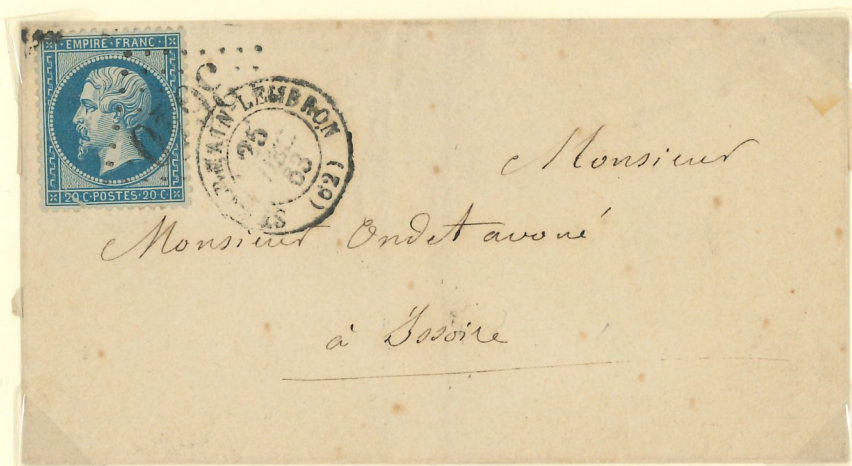 EMPIRE·FRANC·
20 C·POSTES·20 C
ST GERMAIN-LEMBRON
25
63
(62)
Monsieur
Monsieur Ondet avoué
à Issoire